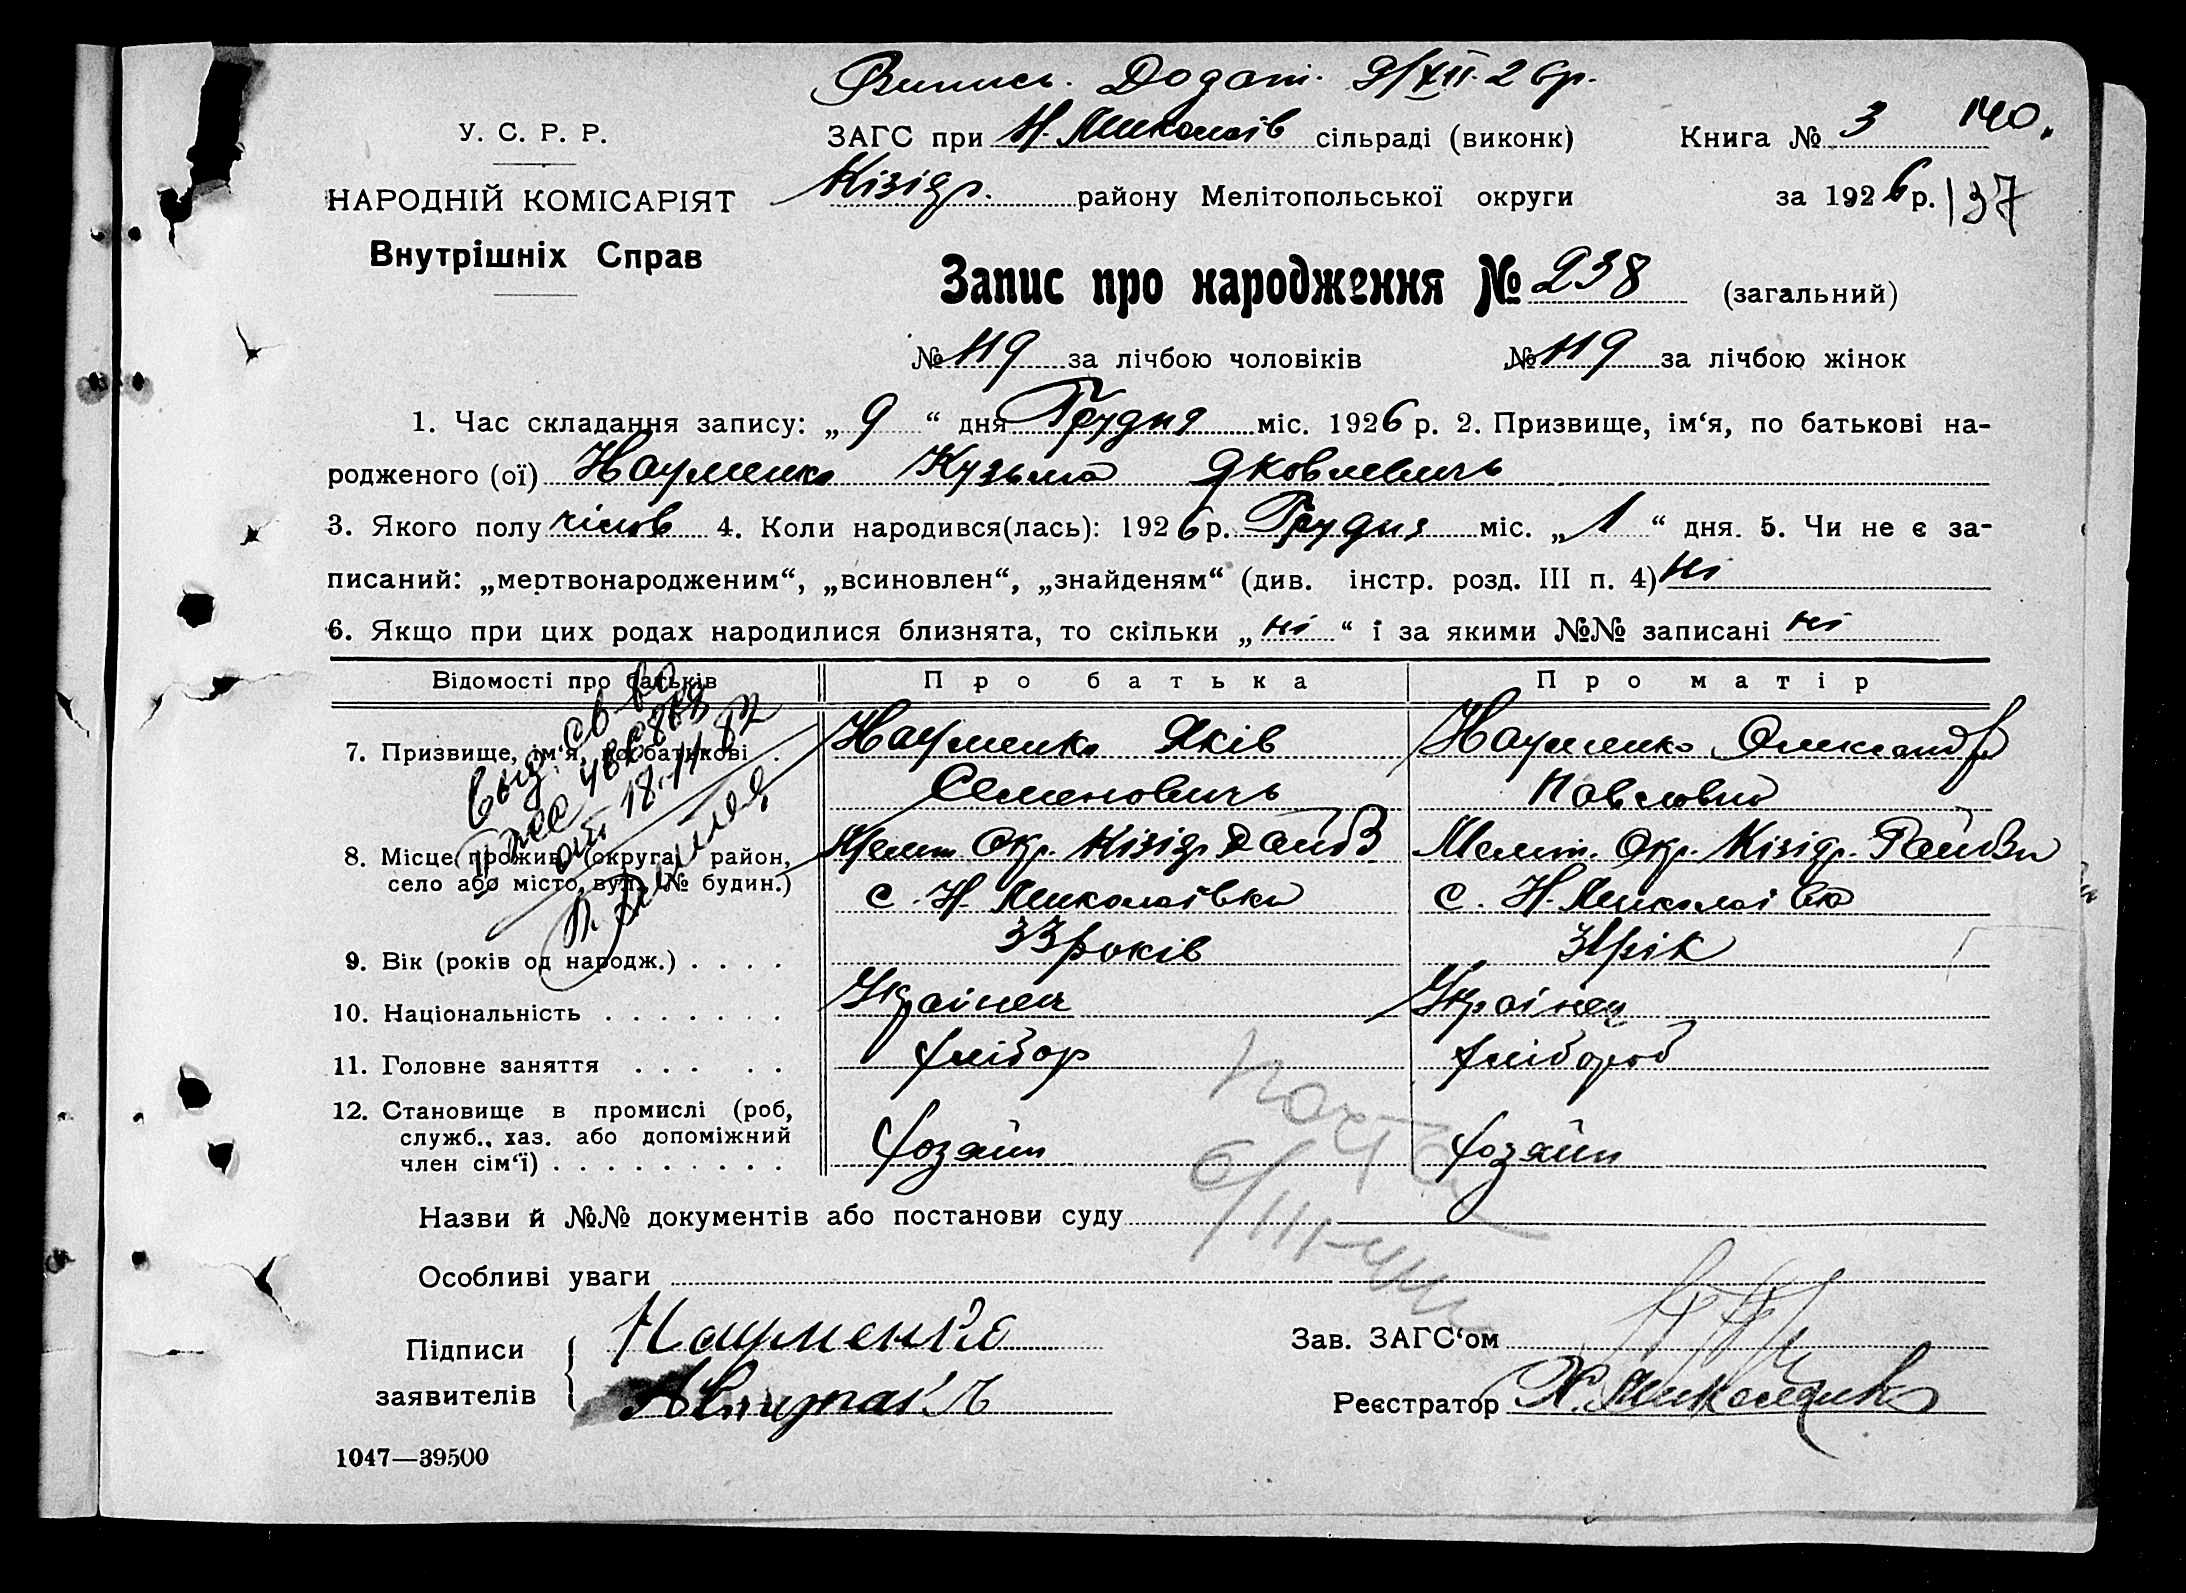 Випись. Додат. 9/XII. 26р.
У. С. Р. Р.
ЗАГС при Н. Миколаїв сільраді (виконк)
Книга № 3 140.
НАРОДНІЙ КОМІСАРІЯТ
Кізіяр. району Мелітопольської округи
за 1926 р. 137
Внутрішніх Справ
Запис про народження № 238 (загальний)
№ 119 за лічбою чоловіків № 119 за лічбою жінок
1. Час складання запису: „ 9 “ дня Грудня міс. 1926 р. 2. Призвище, ім‘я, по батькові на-
родженого (ої) Науменко Кузьма Яковлевичь
3. Якого полу чолов 4. Коли народився(лась): 1926 р. Грудня міс. „ 1 “ дня. 5. Чи не є за-
писаний: „мертвонародженим“, „всиновлен“, „знайденям“ (див. інстр. розд. III п. 4) ні
6. Якщо при цих родах народилися близнята, то скільки „ ні “ і за якими №№ записані ні
Відомості про батьків Про батька Про матір
7. Призвище, ім‘я, по батькові . Науменко Яків Науменко Олександра
Семеновичь Павловна
8. Місце прожив. (округа, район, Меліт. Окр. Кізіяр. Район Меліт. Окр. Кізіяр. Район
село або місто, вул., № будин.) с. Н. Миколаївка с. Н. Миколаївка
9. Вік (років од народж.) . . . . 33 років 31 рік
10. Національність . . . . . . . Українец Українец
11. Головне заняття . . . . . хлібор хлібороб
12. Становище в промислі (роб,
служб., хаз. або допоміжний
член сім‘ї) . . . . . . . . . хозяин хозяин
выд. св-во
18-11-82
Назви й №№ документів або постанови суду
Особливі уваги
Підписи Науменко
Зав. ЗАГС‘ом
заявителів
Реєстратор Х. Миколаенко
1047—39500